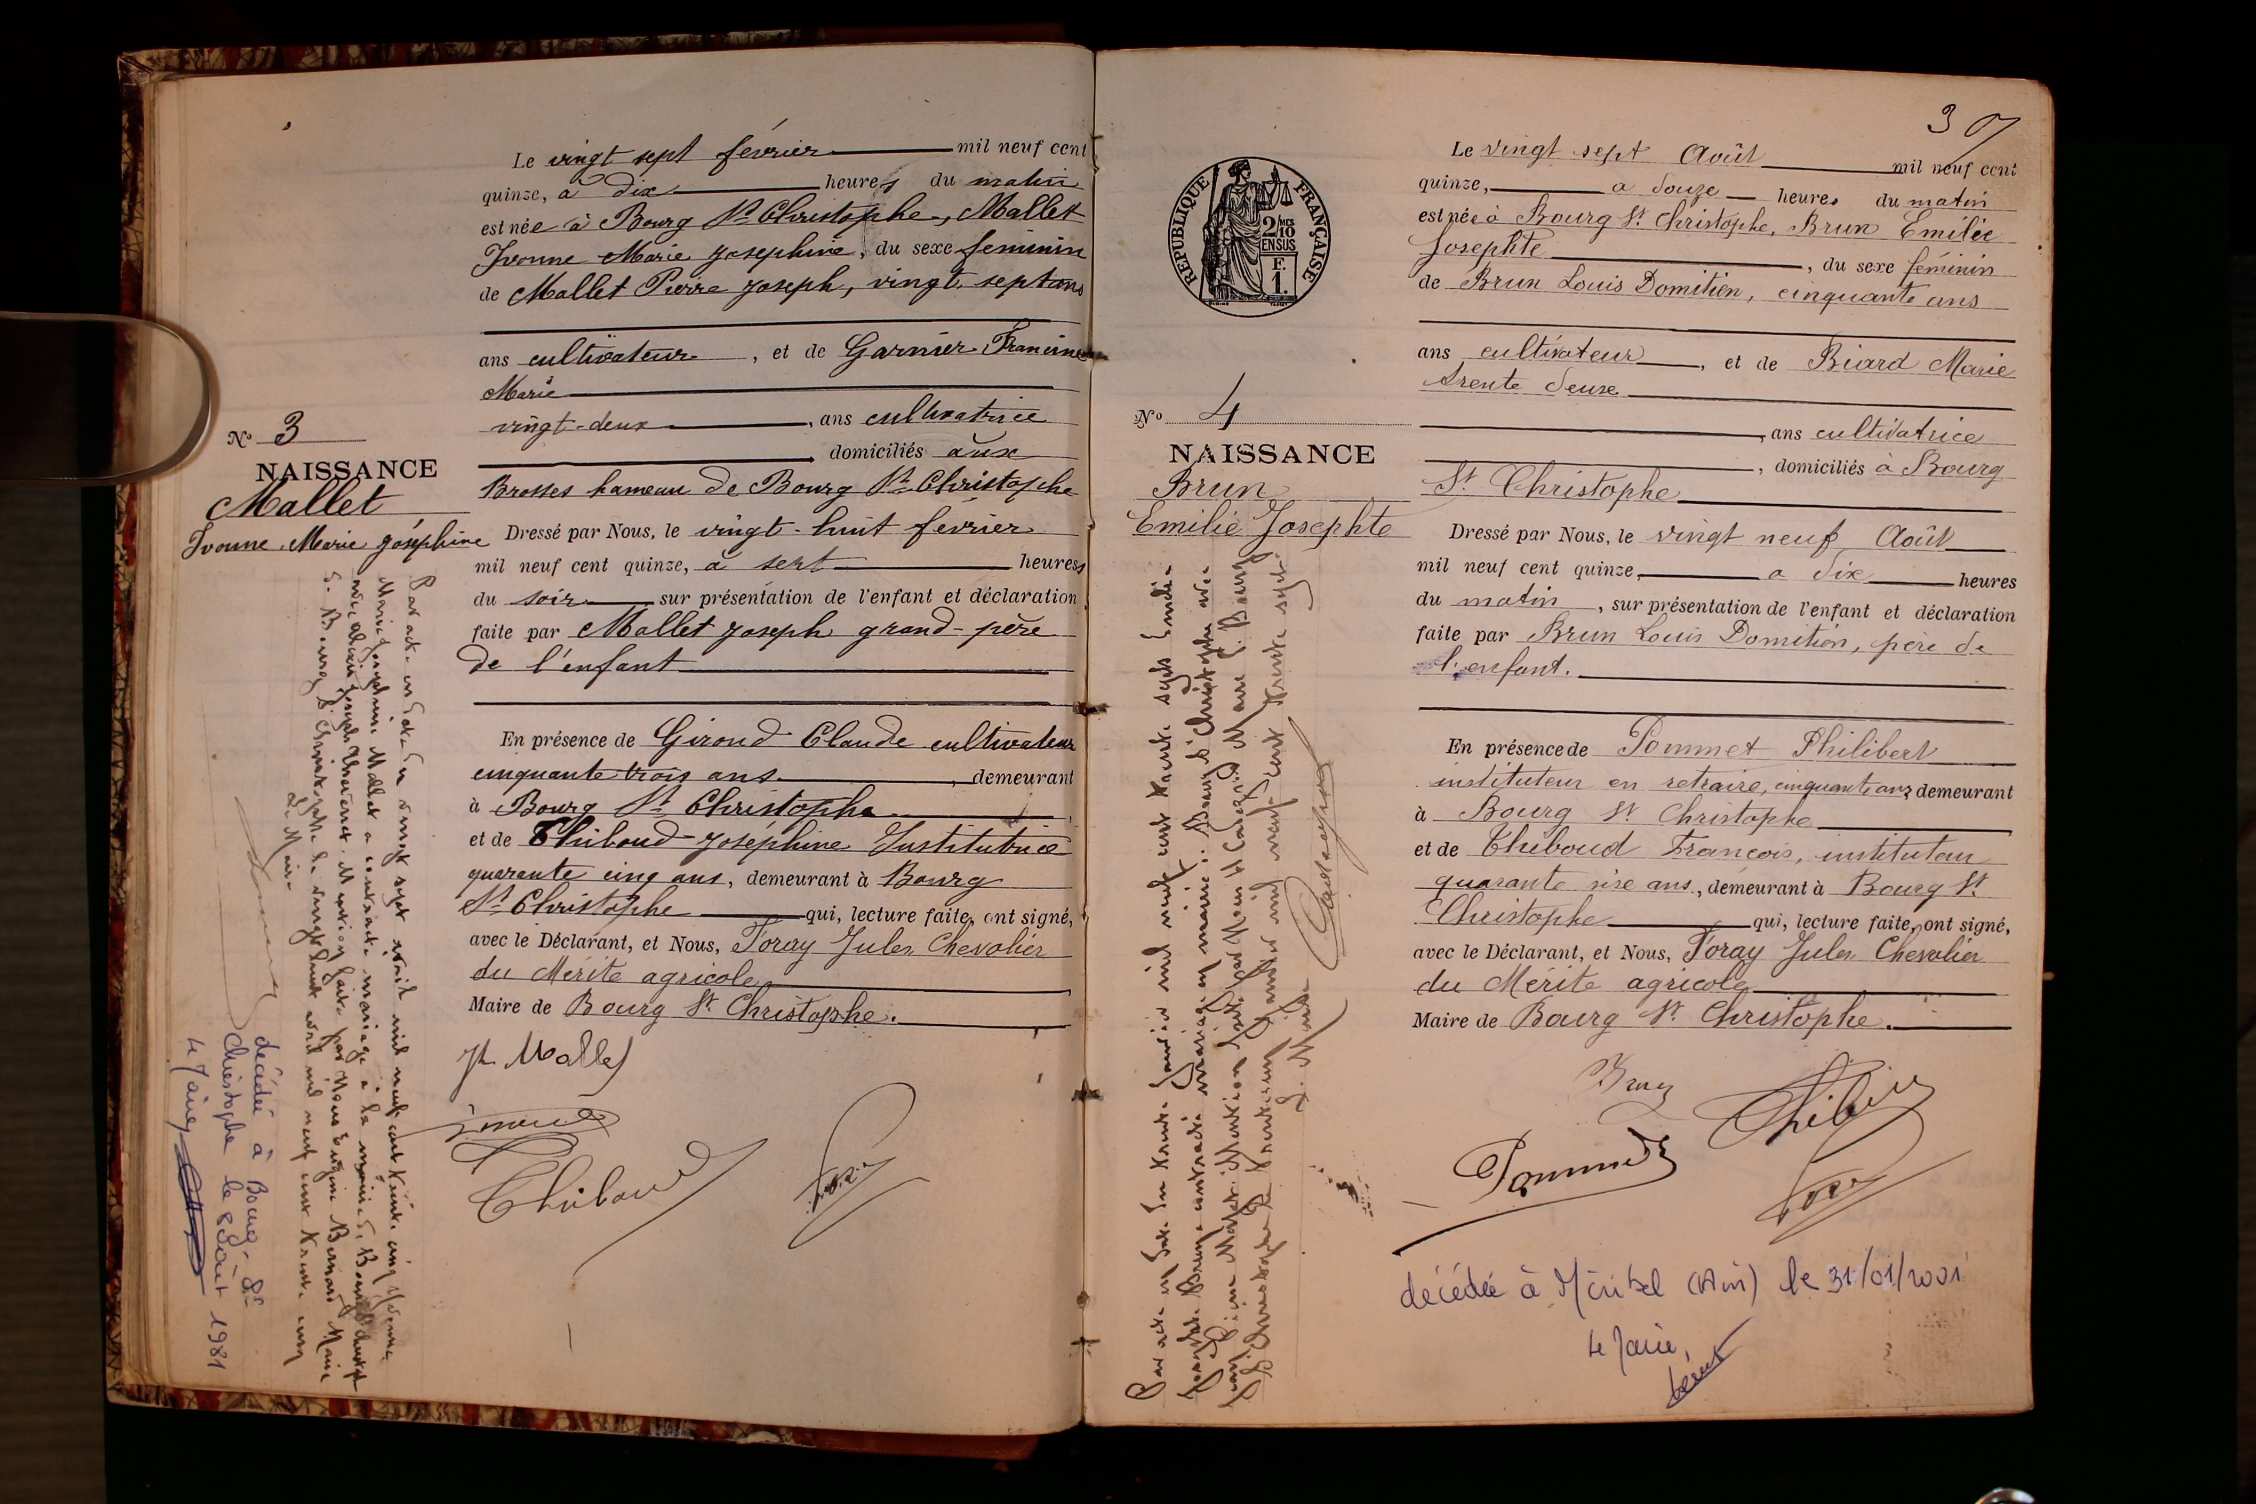 Le vingt sept février mil neuf cent
quinze, à dix heures du matin
est née à Bourg St Christophe, Mallet
Ivonne Marie Joséphine, du sexe féminin
de Mallet Pierre Joseph, vingt-sept ans
ans cultivateur, et de Garnier Francine
Marie
vingt-deux, ans cultivatrice
, domiciliés aux
Brosses hameau de Bourg St Christophe
Dressé par Nous, le vingt-huit février
mil neuf cent quinze, à sept heures
du soir sur présentation de l'enfant et déclaration
faite par Mallet Joseph grand-père
de l'enfant
En présence de Giroud Claude cultivateur
cinquante trois ans, demeurant
à Bourg St Christophe
et de Thiboud Joséphine Institutrice
quarante cinq ans, demeurant à Bourg
St Christophe qui, lecture faite, ont signé,
avec le Déclarant, et Nous, Foray Jules Chevalier
du Mérite agricole
Maire de Bourg St Christophe.
Jh Mallet
Thiboud
No 3
NAISSANCE
Mallet
Ivonne Marie Joséphine
Par acte en date du vingt sept avril mil neuf cent trente cinq Yvonne
Marie Joséphine Mallet a contracté mariage à la mairie de Bourg St Christophe
avec Joseph Mention faite par Nous Eugène Bernard Maire
de Bourg St Christophe le vingt huit avril mil neuf cent trente cinq
Le Maire
décédée à Bourg-St
Christophe le 8 Août 1981
Le Maire
30
RÉPUBLIQUE FRANÇAISE
2/10 MES
EN SUS
F.
1.
No 4
NAISSANCE
Brun
Emilie Josephte
Par acte en date du trente janvier mil neuf cent trente sept Emilie
Josephte Brun a contracté mariage en mairie de Bourg St Christophe avec
Mention faite par Nous Maire de Bourg
St Christophe le trente un janvier mil neuf cent trente sept.
Le Maire
Le vingt sept Août mil neuf cent
quinze, a douze heures du matin
est née à Bourg St Christophe, Brun Emilie
Josephte, du sexe féminin
de Brun Louis Domitien, cinquante ans
ans cultivateur, et de Biard Marie
trente deux
, ans cultivatrice
, domiciliés à Bourg
St Christophe
Dressé par Nous, le vingt neuf Août
mil neuf cent quinze, a dix heures
du matin, sur présentation de l'enfant et déclaration
faite par Brun Louis Domitien, père de
l'enfant.
En présence de Pommet Philibert
instituteur en retraite, cinquante ans, demeurant
à Bourg St Christophe
et de Thiboud François, instituteur
quarante six ans, demeurant à Bourg St
Christophe qui, lecture faite, ont signé,
avec le Déclarant, et Nous, Foray Jules Chevalier
du Mérite agricole
Maire de Bourg St Christophe.
Brun
Thiboud
Pommet
Foray
décédée à Miribel (Ain) le 31/01/2001
Le Maire,